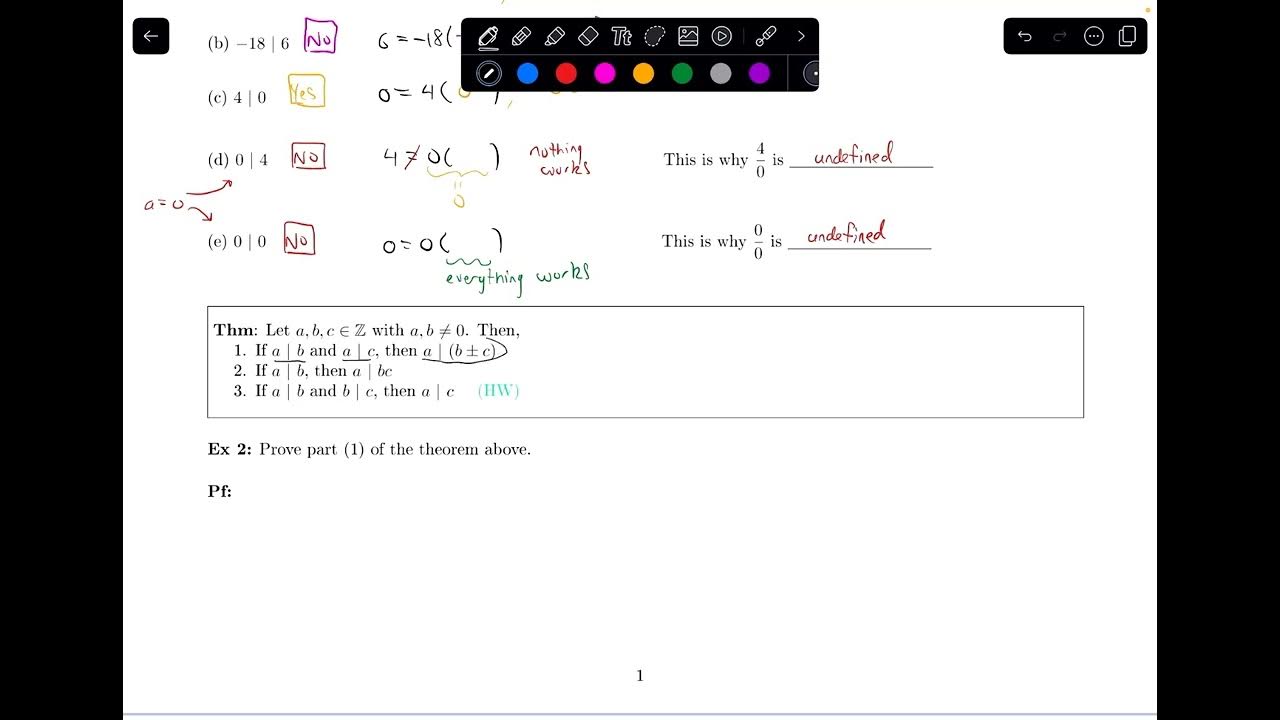 (b) −18 | 6 No 6 = −18(
(c) 4 | 0 Yes 0 = 4( 0 ),
(d) 0 | 4 NO 4 ≠ 0( ) nothing works This is why 4/0 is undefined
= 0
a = 0
(e) 0 | 0 NO 0 = 0( ) This is why 0/0 is undefined
everything works
Thm: Let a, b, c ∈ ℤ with a, b ≠ 0. Then,
1. If a | b and a | c, then a | (b ± c)
2. If a | b, then a | bc
3. If a | b and b | c, then a | c (HW)
Ex 2: Prove part (1) of the theorem above.
Pf:
1